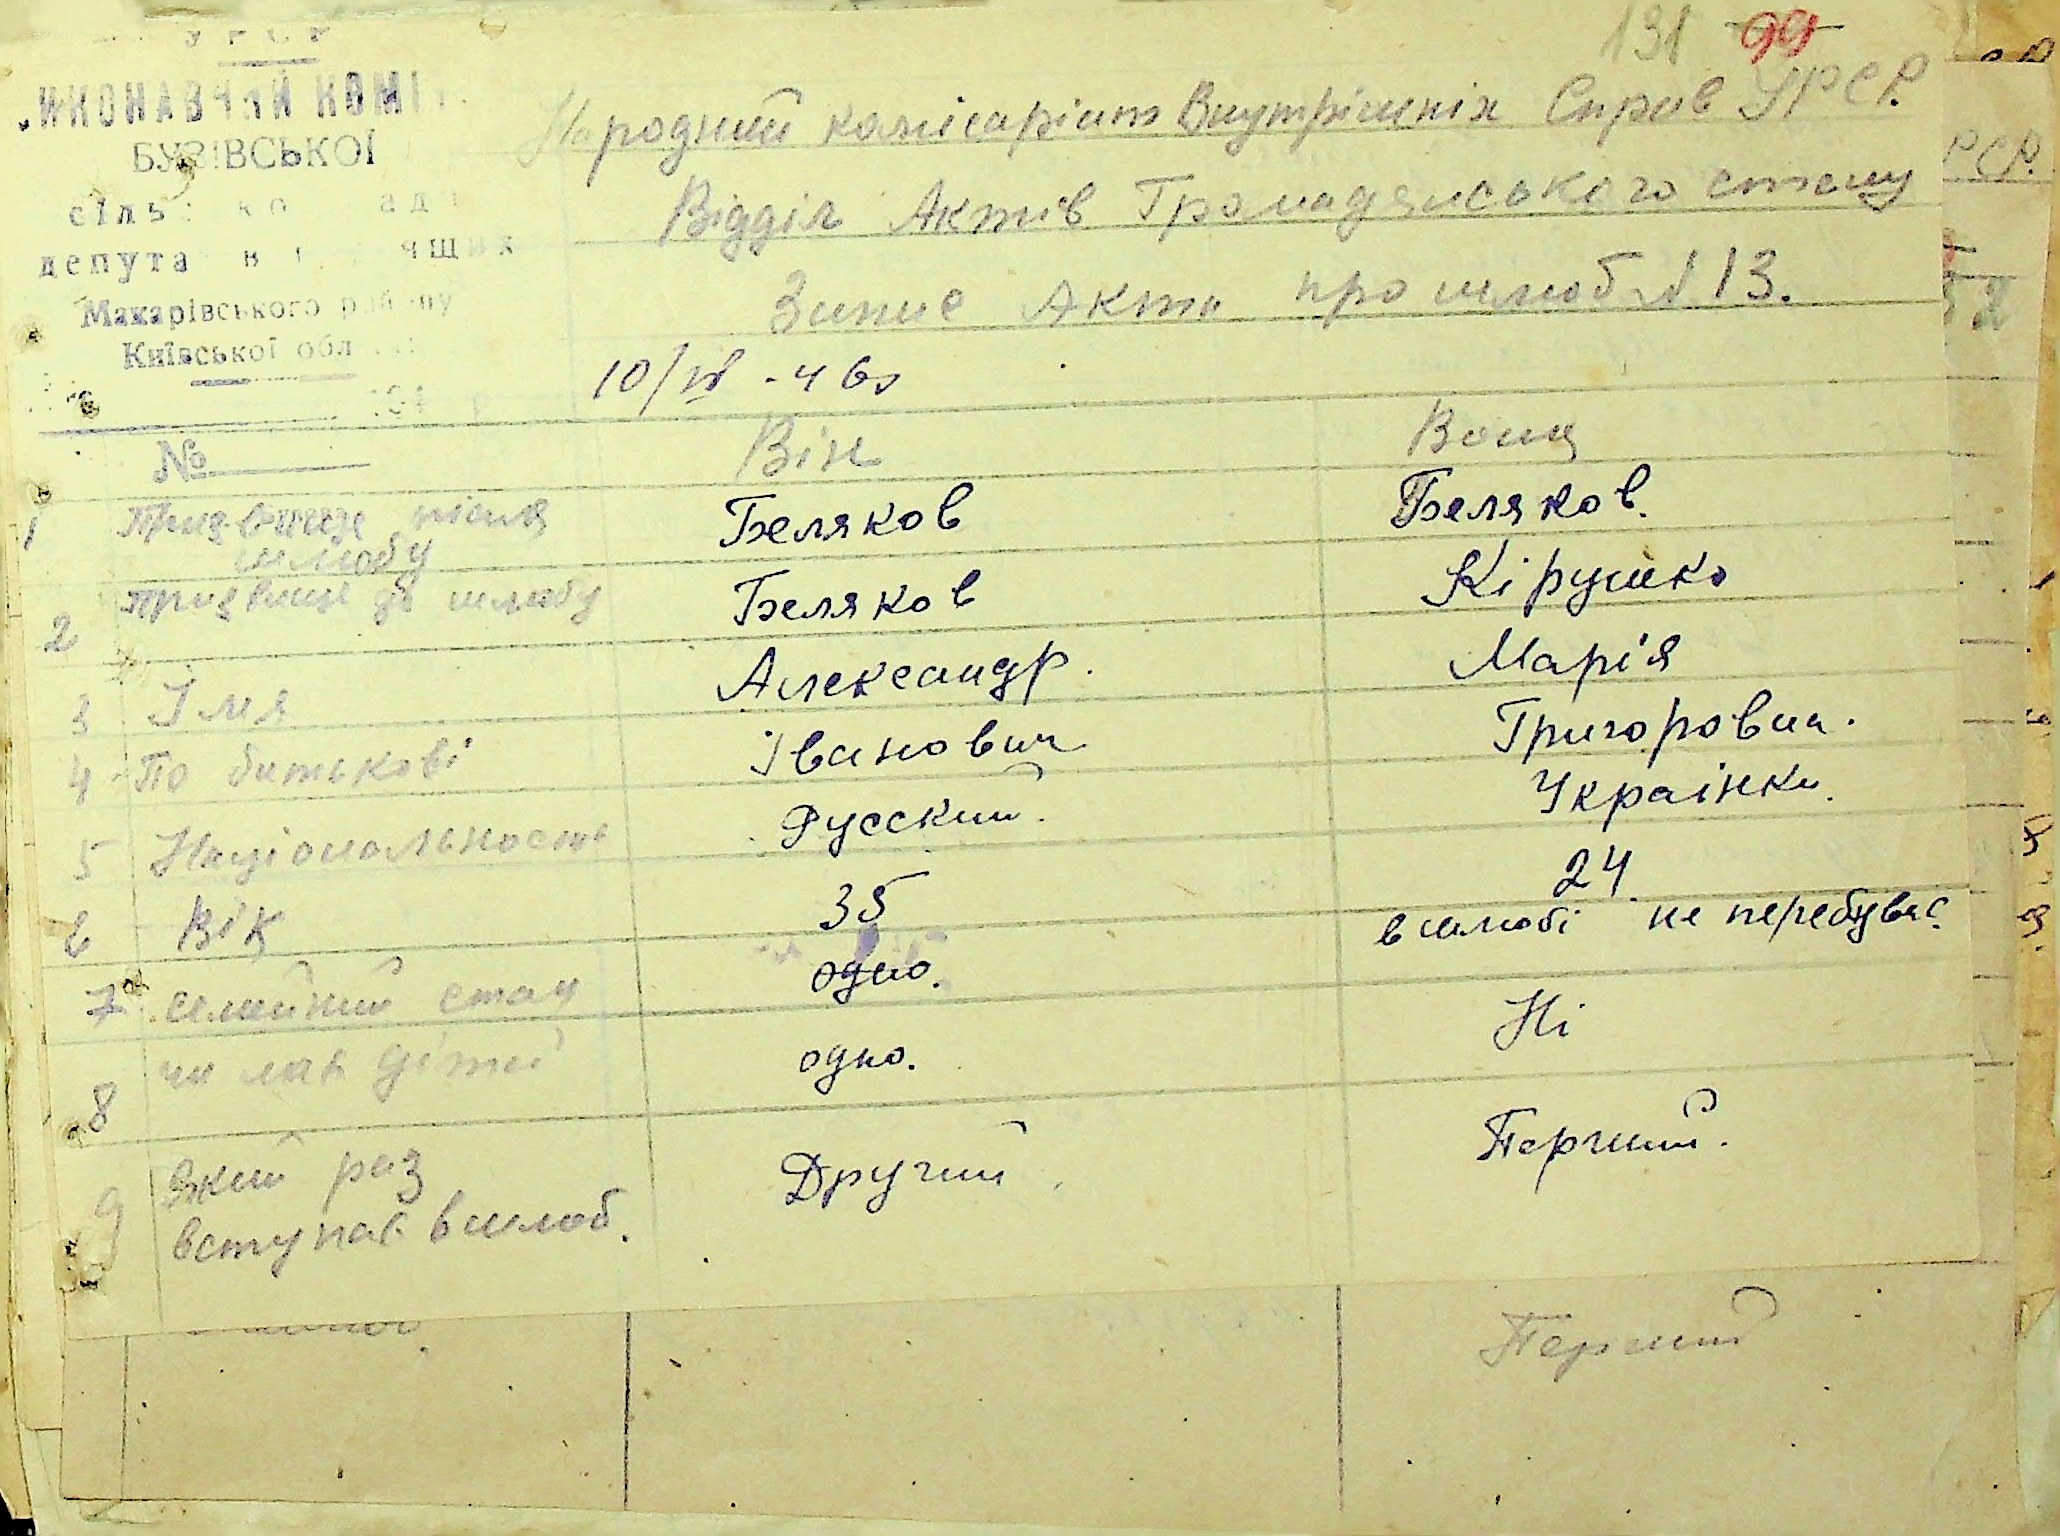 131 99
УРСР
ИКОНАВЧИЙ КОМІ
БУЗІВСЬКОЇ
Макарівського району
Київської обл
№
Народний комісаріат Внутрішніх Справ УРСР.
Відділ Актів Громадянського стану
Запис Акта про шлюб №13.
10/
Він Вона
1 Призвище після шлюбу Беляков Беляков.
2 призвище до шлюбу Беляков Кірушко
3 Імя Александр. Марія
4 По батькові Іванович Григоровна.
5 Національность Русский. Украінка.
6 Вік 35 24.
7 семейний стан одно. в шлюбі не перебуває.
8 чи має дітей одно. Ні
9 Який раз вступає в шлюб. Другий Перчий.
Перший